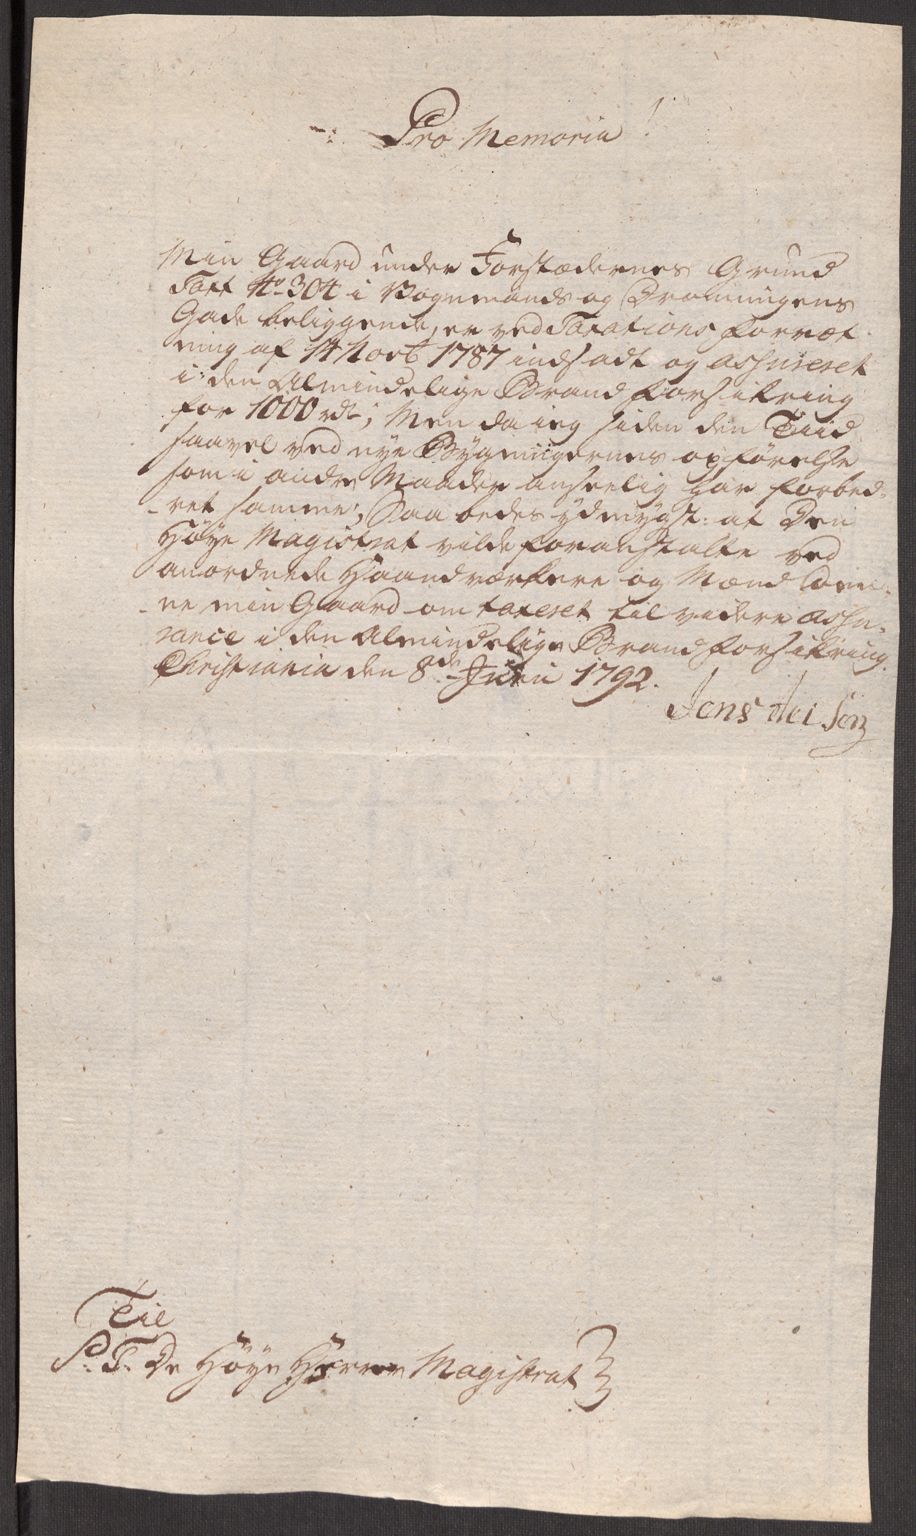 Pro Memoria!
Min Gaard under Forstædernes Grund
Taxt No 304 i Vognmands og Dronningens
Gade beliggende, er ved Taxations Forret-
ning af 14 Novb 1787 indsadt og assureret
i den Almindelige Brand Forsikring
for 1000 rd; Men da ieg siden den Tiid
saavel ved nye Bygningernes opførelse
som i andre Maader anseelig har forbed-
-ret samme; Saa bedes ydmygst: at Den
Høye Magistrat vilde foranstalte ved
anordnede Haandværkere og Mænd denn-
-ne min Gaard om taxeret til videre assu-
rance i den Almindelige Brandforsikring.
Christiania den 8de Juni 1792.
Jens
Til
P: T: De Høye Herrer Magistrat